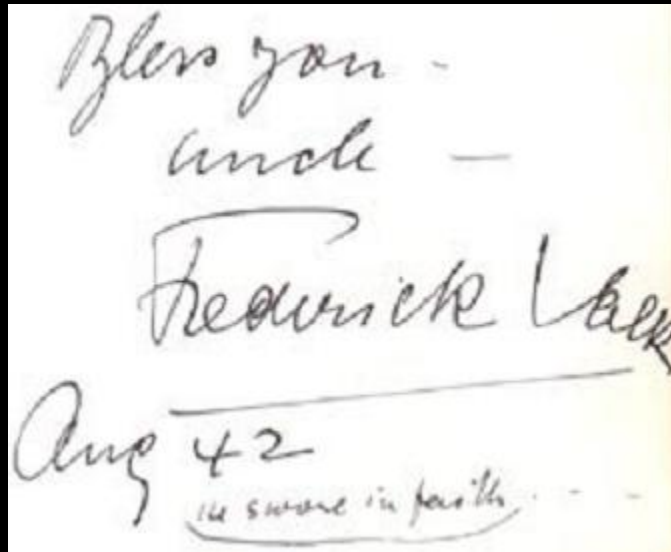 Bless you -
uncle —
Frederick Valk
Aug 42
swore in faith . - -